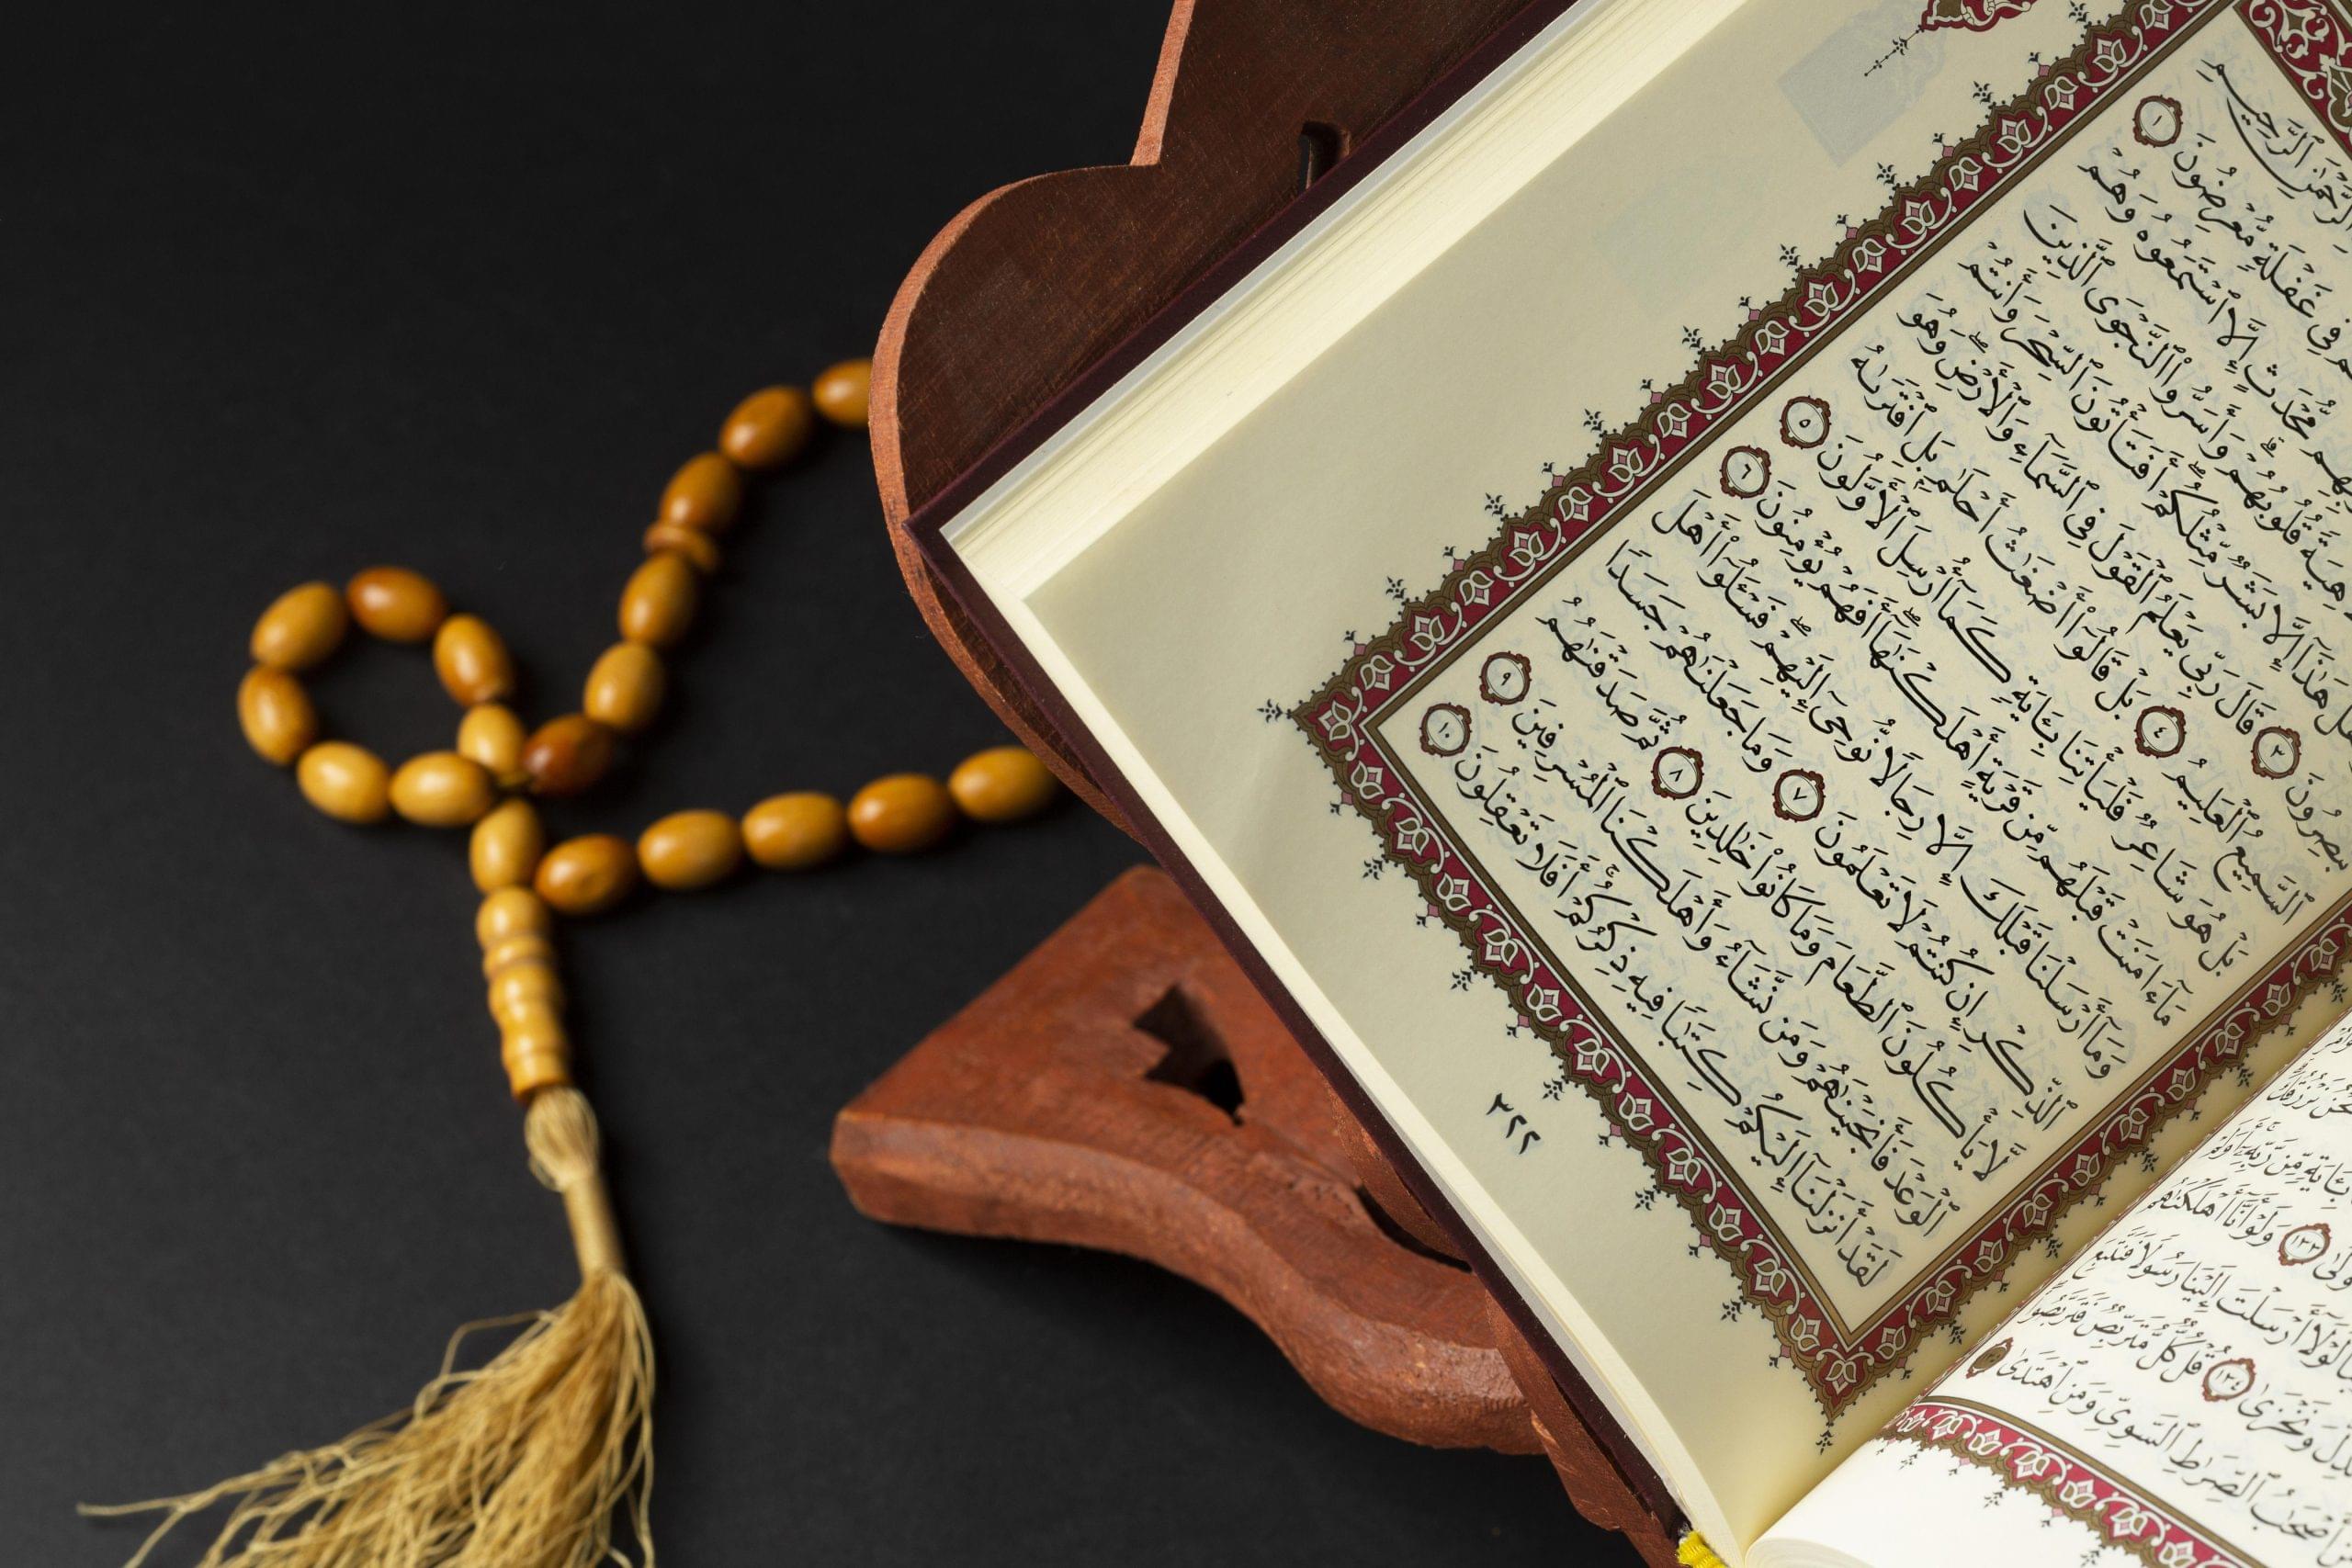 ٱلرَّحۡمَٰنِ ٱلرَّحِيمِ
فِي غَفۡلَةٖ مُّعۡرِضُونَ ١
مُّحۡدَثٍ إِلَّا ٱسۡتَمَعُوهُ وَهُمۡ
قُلُوبُهُمۡۗ وَأَسَرُّواْ ٱلنَّجۡوَى ٱلَّذِينَ
هَٰذَآ إِلَّا بَشَرٞ مِّثۡلُكُمۡۖ أَفَتَأۡتُونَ ٱلسِّحۡرَ وَأَنتُمۡ
تُبۡصِرُونَ ٣ قَالَ رَبِّي يَعۡلَمُ ٱلۡقَوۡلَ فِي ٱلسَّمَآءِ وَٱلۡأَرۡضِۖ وَهُوَ
ٱلسَّمِيعُ ٱلۡعَلِيمُ ٤ بَلۡ قَالُوٓاْ أَضۡغَٰثُ أَحۡلَٰمِۭ بَلِ ٱفۡتَرَىٰهُ
بَلۡ هُوَ شَاعِرٞ فَلۡيَأۡتِنَا بِـَٔايَةٖ كَمَآ أُرۡسِلَ ٱلۡأَوَّلُونَ ٥
مَآ ءَامَنَتۡ قَبۡلَهُم مِّن قَرۡيَةٍ أَهۡلَكۡنَٰهَآۖ أَفَهُمۡ يُؤۡمِنُونَ ٦
وَمَآ أَرۡسَلۡنَا قَبۡلَكَ إِلَّا رِجَالٗا نُّوحِيٓ إِلَيۡهِمۡۖ فَسۡـَٔلُوٓاْ أَهۡلَ
ٱلذِّكۡرِ إِن كُنتُمۡ لَا تَعۡلَمُونَ ٧ وَمَا جَعَلۡنَٰهُمۡ جَسَدٗا
لَّا يَأۡكُلُونَ ٱلطَّعَامَ وَمَا كَانُواْ خَٰلِدِينَ ٨ ثُمَّ صَدَقۡنَٰهُمُ
ٱلۡوَعۡدَ فَأَنجَيۡنَٰهُمۡ وَمَن نَّشَآءُ وَأَهۡلَكۡنَا ٱلۡمُسۡرِفِينَ ٩
لَقَدۡ أَنزَلۡنَآ إِلَيۡكُمۡ كِتَٰبٗا فِيهِ ذِكۡرُكُمۡۚ أَفَلَا تَعۡقِلُونَ ١٠
٣٢٢
نَّحۡنُ نَرۡزُقُكَۗ
بِـَٔايَةٖ مِّن رَّبِّهِۦٓۚ أَوَلَمۡ
١٣٣ وَلَوۡ أَنَّآ أَهۡلَكۡنَٰهُم
لَوۡلَآ أَرۡسَلۡتَ إِلَيۡنَا رَسُولٗا فَنَتَّبِعَ
وَنَخۡزَىٰ ١٣٤ قُلۡ كُلّٞ مُّتَرَبِّصٞ فَتَرَبَّصُواْۖ
أَصۡحَٰبُ ٱلصِّرَٰطِ ٱلسَّوِيِّ وَمَنِ ٱهۡتَدَىٰ